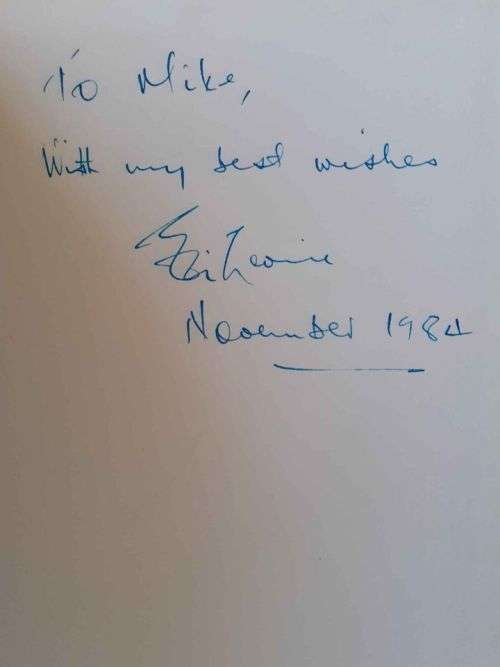 To Mike,
With my best wishes
November 1984